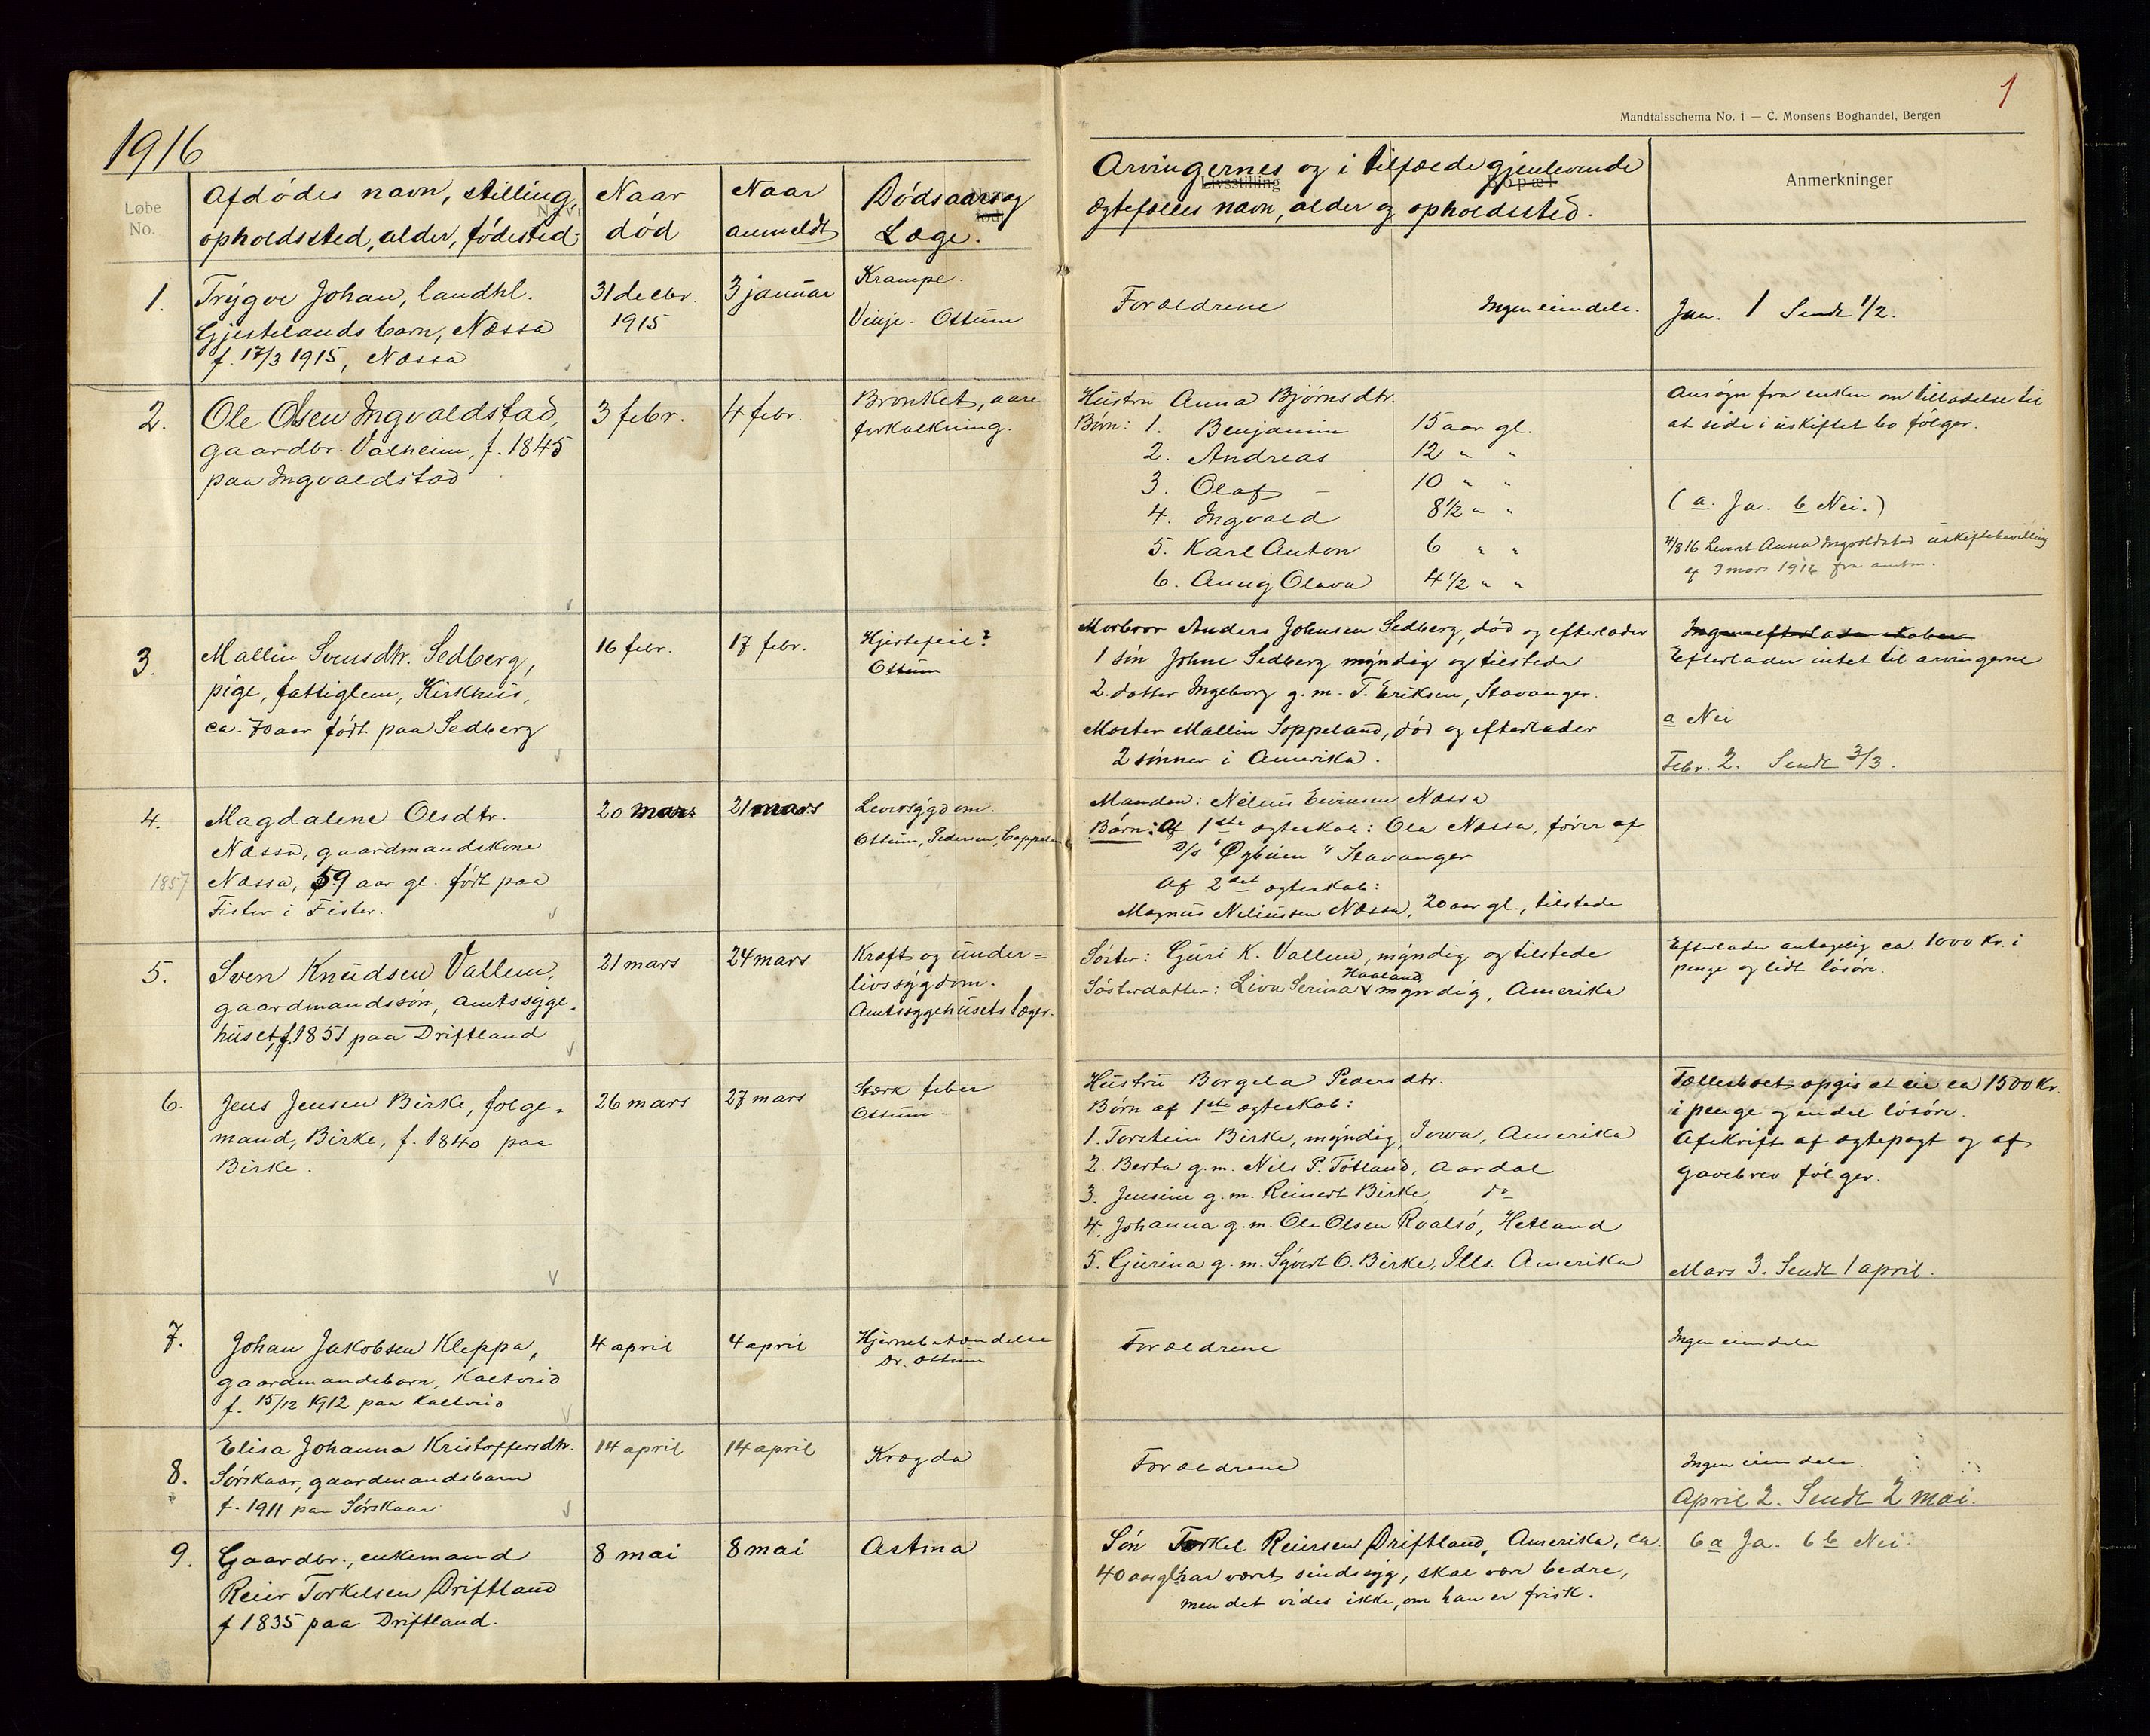 1916
Løbe No.
Afdødes navn, stilling, opholdssted, alder, fødested
Naar død
Naar anmeldt
Dødsaarsag Læge.
1.
Trygve Johan, landhl.
Gjestelands barn, Næssa
f. 17/3 1915, Næssa
31 decbr.
1915
3 januar
Krampe.
Vinje - Ottum
2.
Ole Olsen Ingvaldstad,
gaardbr. Valheim, f. 1845
paa Ingvaldstad
3 febr.
4 febr.
Bronket, aare
forkalkning.
3.
Mallin Svensdtr. Sedberg,
pige, fattiglem, Kirkhus,
ca. 70 aar født paa Sedberg
16 febr.
17 febr.
Hjertefeil?
Ottum
4.
1857
Magdalene Olsdtr.
Næssa, gaardmandskone
Næssa, 59 aar gl. født paa
Fister i Fister.
20 mars
21 mars
Leversygdom.
Ottum, Pedersen, Cappelen
5.
Sven Knudsen Vallem,
gaardmandssøn, Amtssyge-
huset, f. 1851 paa Driftland
21 mars
24 mars
Kræft og under=
livssygdom.
Amtssygehusets læger.
6.
Jens Jensen Birke, følge-
mand, Birke, f. 1840 paa
Birke.
26 mars
27 mars
Stærk feber
Ottum
7.
Johan Jakobsen Kleppa,
gaardmandsbarn, Kaltveid
f. 15/12 1912 paa Kaltveid
4 april
4 april
Hjernebetændelse
Dr. Ottum
8.
Elisa Johanna Kristoffersdtr.
Sørskaar, gaardmandsbarn
f. 1911 paa Sørskaar
14 april
14 april
Krøgda
9.
Gaardbr., enkemand
Reier Torkelsen Driftland
f 1835 paa Driftland.
8 mai
8 mai
Astma
1
Mandtalsschema No. 1 — C. Monsens Boghandel, Bergen
Arvingernes og i tilfælde gjenlevende
Livsstilling
Bopæl
ægtefælles navn, alder og opholdssted.
Anmerkninger
Forældrene
Ingen eiendele.
Jan. 1 Sendt 1/2.
Hustru Anna Bjørnsdtr.
Børn: 1. Benjamin 15 aar gl.
2. Andreas 12 " "
3. Olaf 10 " "
4. Ingvald 8 1/2 " "
5. Karl Anton 6 " "
6. Annig Olava 4 1/2 " "
Ansøgn fra enken om tilladelse til
at side i uskiftet bo følger.
(a. Ja. b Nei.)
4/8 16 Levert Anna Ingvaldstad uskiftebevilling
af 9 mars 1916 fra amtm.
Morbror Anders Johnsen Sedberg, død og efterlader
1 søn Johne Sedberg myndig og tilstede
2. datter Ingeborg g.m. T. Eriksen, Stavanger.
Moster Mallin Soppeland, død og efterlader
2 sønner i Amerika.
Ingen efterladenskaber
Efterlader intet til arvingerne
a Nei
Febr. 2. Sendt 3/3.
Manden: Nelius Eivinsen Næssa
Børn: Af 1ste ægteskab: Ola Næssa, fører af
D/S "Øybuen" Stavanger
Af 2det ægteskab:
Magnus Neliussen Næssa, 20 aar gl., tilstede
Søster: Guri K. Vallem, myndig og tilstede
Haaland
Søsterdatter: Liva Serina myndig, Amerika
Efterlader antagelig ca. 1000 Kr. i
penge og lidt løsøre.
Hustru Borgela Pedersdtr.
Børn af 1ste ægteskab:
1. Torstein Birke, myndig, Iowa, Amerika
2. Berta g.m. Nils P. Tøtland, Aardal
3. Jensine g.m. Reinert Birke, do
4. Johanna g.m. Ole Olsen Roalsø, Hetland
5. Gurina g.m. Sjvert O. Birke, Ills. Amerika
Fællesboet opgis at eie ca 1500 Kr.
i penge og endel løsøre.
Afskrift af ægtepagt og af
gavebrev følger.
Mars 3. Sendt 1 april.
Forældrene
Ingen eiendele
Forældrene
Ingen eiendele.
April 2. Sendt 2 mai.
Søn Torkel Reiersen Driftland, Amerika, ca.
40 aar gl. har været sindssyg, skal være bedre,
men det vides ikke, om han er frisk.
6 a Ja. 6 b Nei